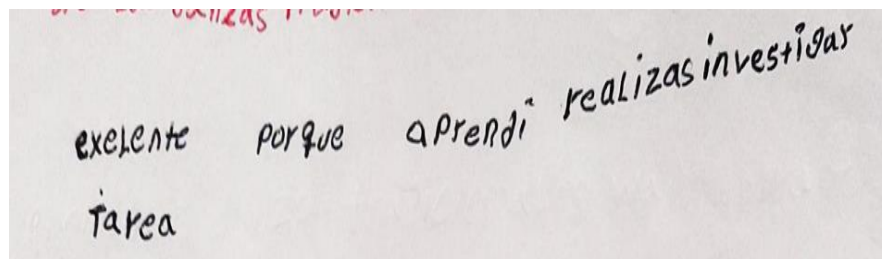 exelente porque aprendi realizas investigar
tarea